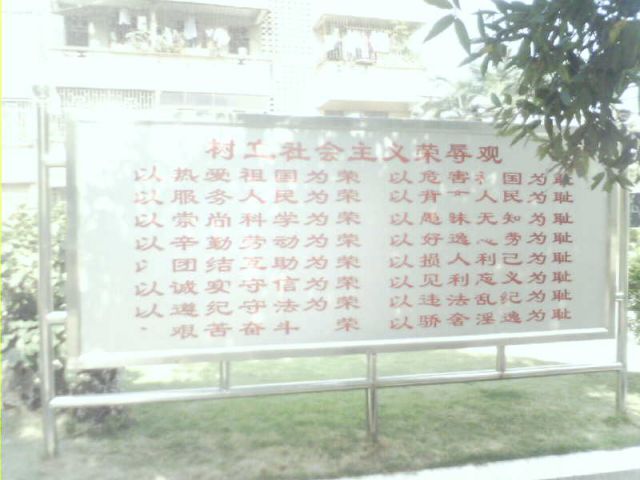 村工社会主义荣辱观
以热爱祖国为荣 以危害国为耻
以服务人民为荣 以背人民为耻
以崇尚科学为荣 以愚昧无知为耻
以辛勤劳动为荣 以好逸劳为耻
团结互助为荣 以损人利己为耻
以诚实守信为荣 以见利忘义为耻
以遵纪守法为荣 以违法乱纪为耻
艰苦奋斗 荣 以骄奢淫逸为耻